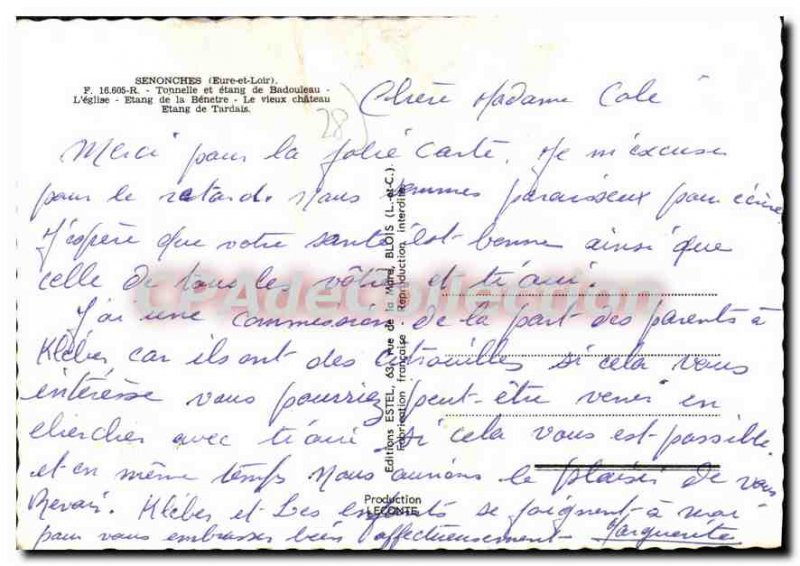 SENONCHES (Eure-et-Loir).
F. 16.605-R. - Tonnelle et étang de Badouleau -
L'église - Etang de la Bénetre - Le vieux château
Etang de Tardais.
28
Chère Madame
Merci pour la jolie carte. Je m'excuse
pour le retard. Nous sommes paraisseux pour écrire
J'espère que votre santé est bonne ainsi que
celle de tous les vôtres et
J'ai une commission de la part des parents à
Kléber car ils ont des citrouilles si cela vous
intéresse vous pourriez peut-être venir en
chercher avec si cela vous est possible.
et en même temps nous aurions le plaisir de vous
Revoir. Kléber et Les enfants se joignent à moi
pour vous embrasser bien affectueusement - Marguerite
Editions ESTEL, 63, rue de la Mare, BLOIS (L.-et-C.)
Fabrication française - Reproduction interdite
Production
LECONTE
CPAdeCollection